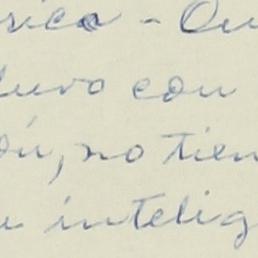 rica - Qu
luvo con
ón, no tien
e intelig